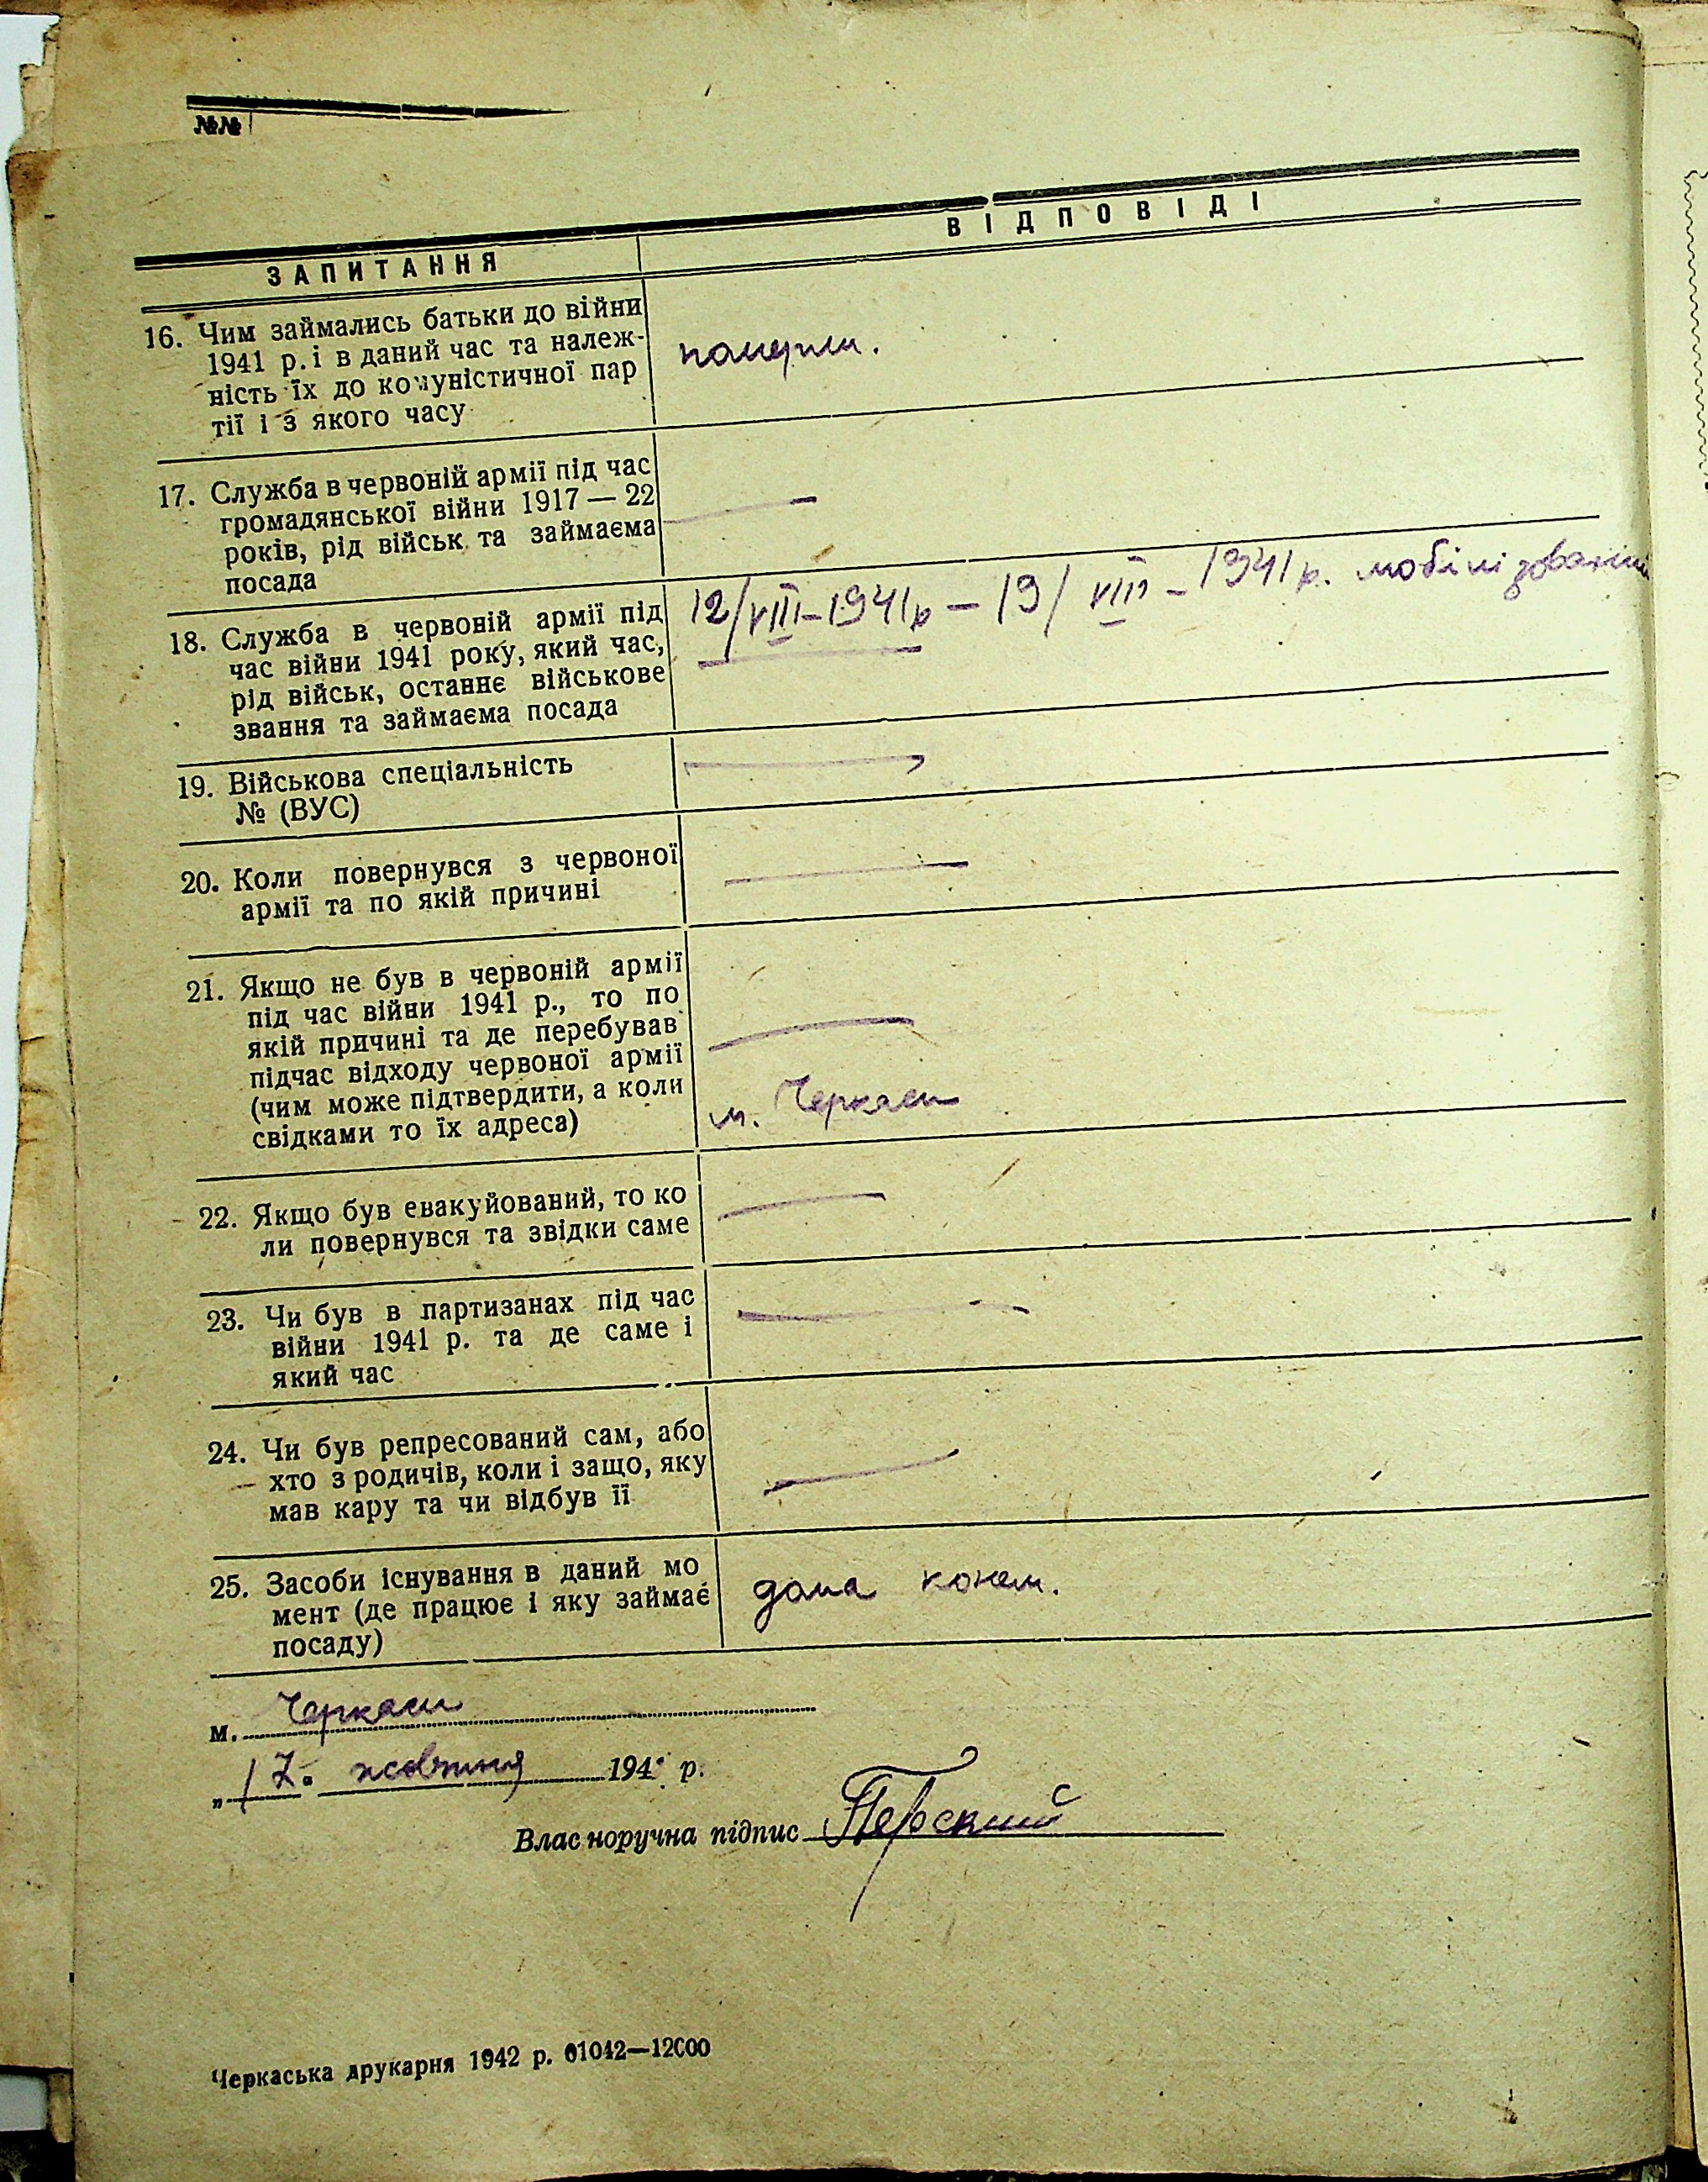 №№
ЗАПИТАННЯ
ВІДПОВІДІ
16. Чим займались батьки до війни
1941 р. і в даний час та належ-
ність їх до комуністичної пар
тії і з якого часу
померли.
17. Служба в червоній армії під час
громадянської війни 1917 — 22
років, рід військ та займаєма
посада
—
18. Служба в червоній армії під
час війни 1941 року, який час,
рід військ, останнє військове
звання та займаєма посада
12/VIII-1941р — 19/VIII - 1941р. мобілізований
—
19. Військова спеціальність
№ (ВУС)
—
20. Коли повернувся з червоної
армії та по якій причині
—
21. Якщо не був в червоній армії
під час війни 1941 р., то по
якій причині та де перебував
підчас відходу червоної армії
(чим може підтвердити, а коли
свідками то їх адреса)
—
м. Черкаси
22. Якщо був евакуйований, то ко
ли повернувся та звідки саме
—
23. Чи був в партизанах під час
війни 1941 р. та де саме і
який час
—
24. Чи був репресований сам, або
хто з родичів, коли і защо, яку
мав кару та чи відбув її
—
25. Засоби існування в даний мо
мент (де працює і яку займає
посаду)
дома
м. Черкаси
„17. жовтня 194 р.
Власноручна підпис
Черкаська друкарня 1942 р. 01042—12000